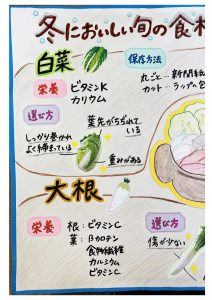 冬においしい旬の食材
白菜
栄養 ビタミンK
カリウム
保存方法
丸ごと…新聞紙
カット…ラップへ包
選び方
葉先がちぢれて
いる
しっかり巻かれ
よく締まっている
重みがある
大根
栄養
根:ビタミンC
葉:βカロテン
食物繊維
カルシウム
ビタミンC
選び方
傷が少ない